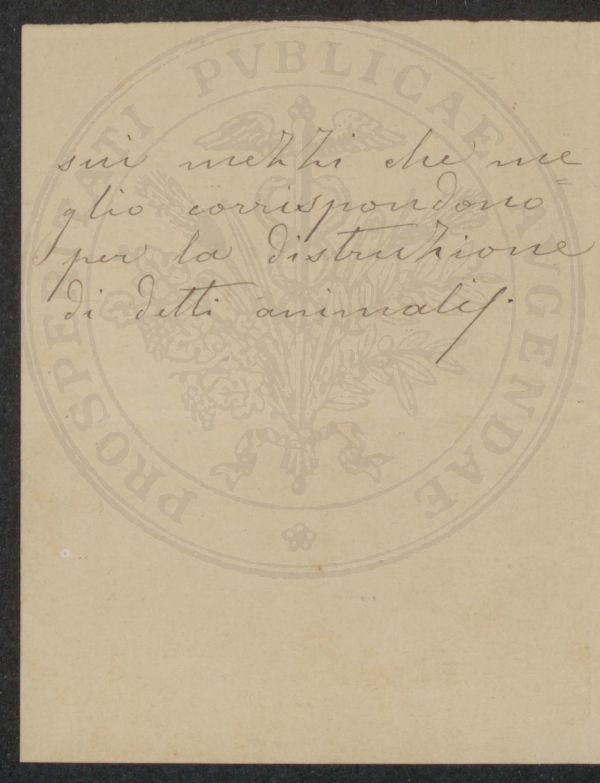 PROSPERITATI PVBLICAE AVGENDAE
sui mezzi che me=
glio corrispondono
per la distruzione
di detti animali.